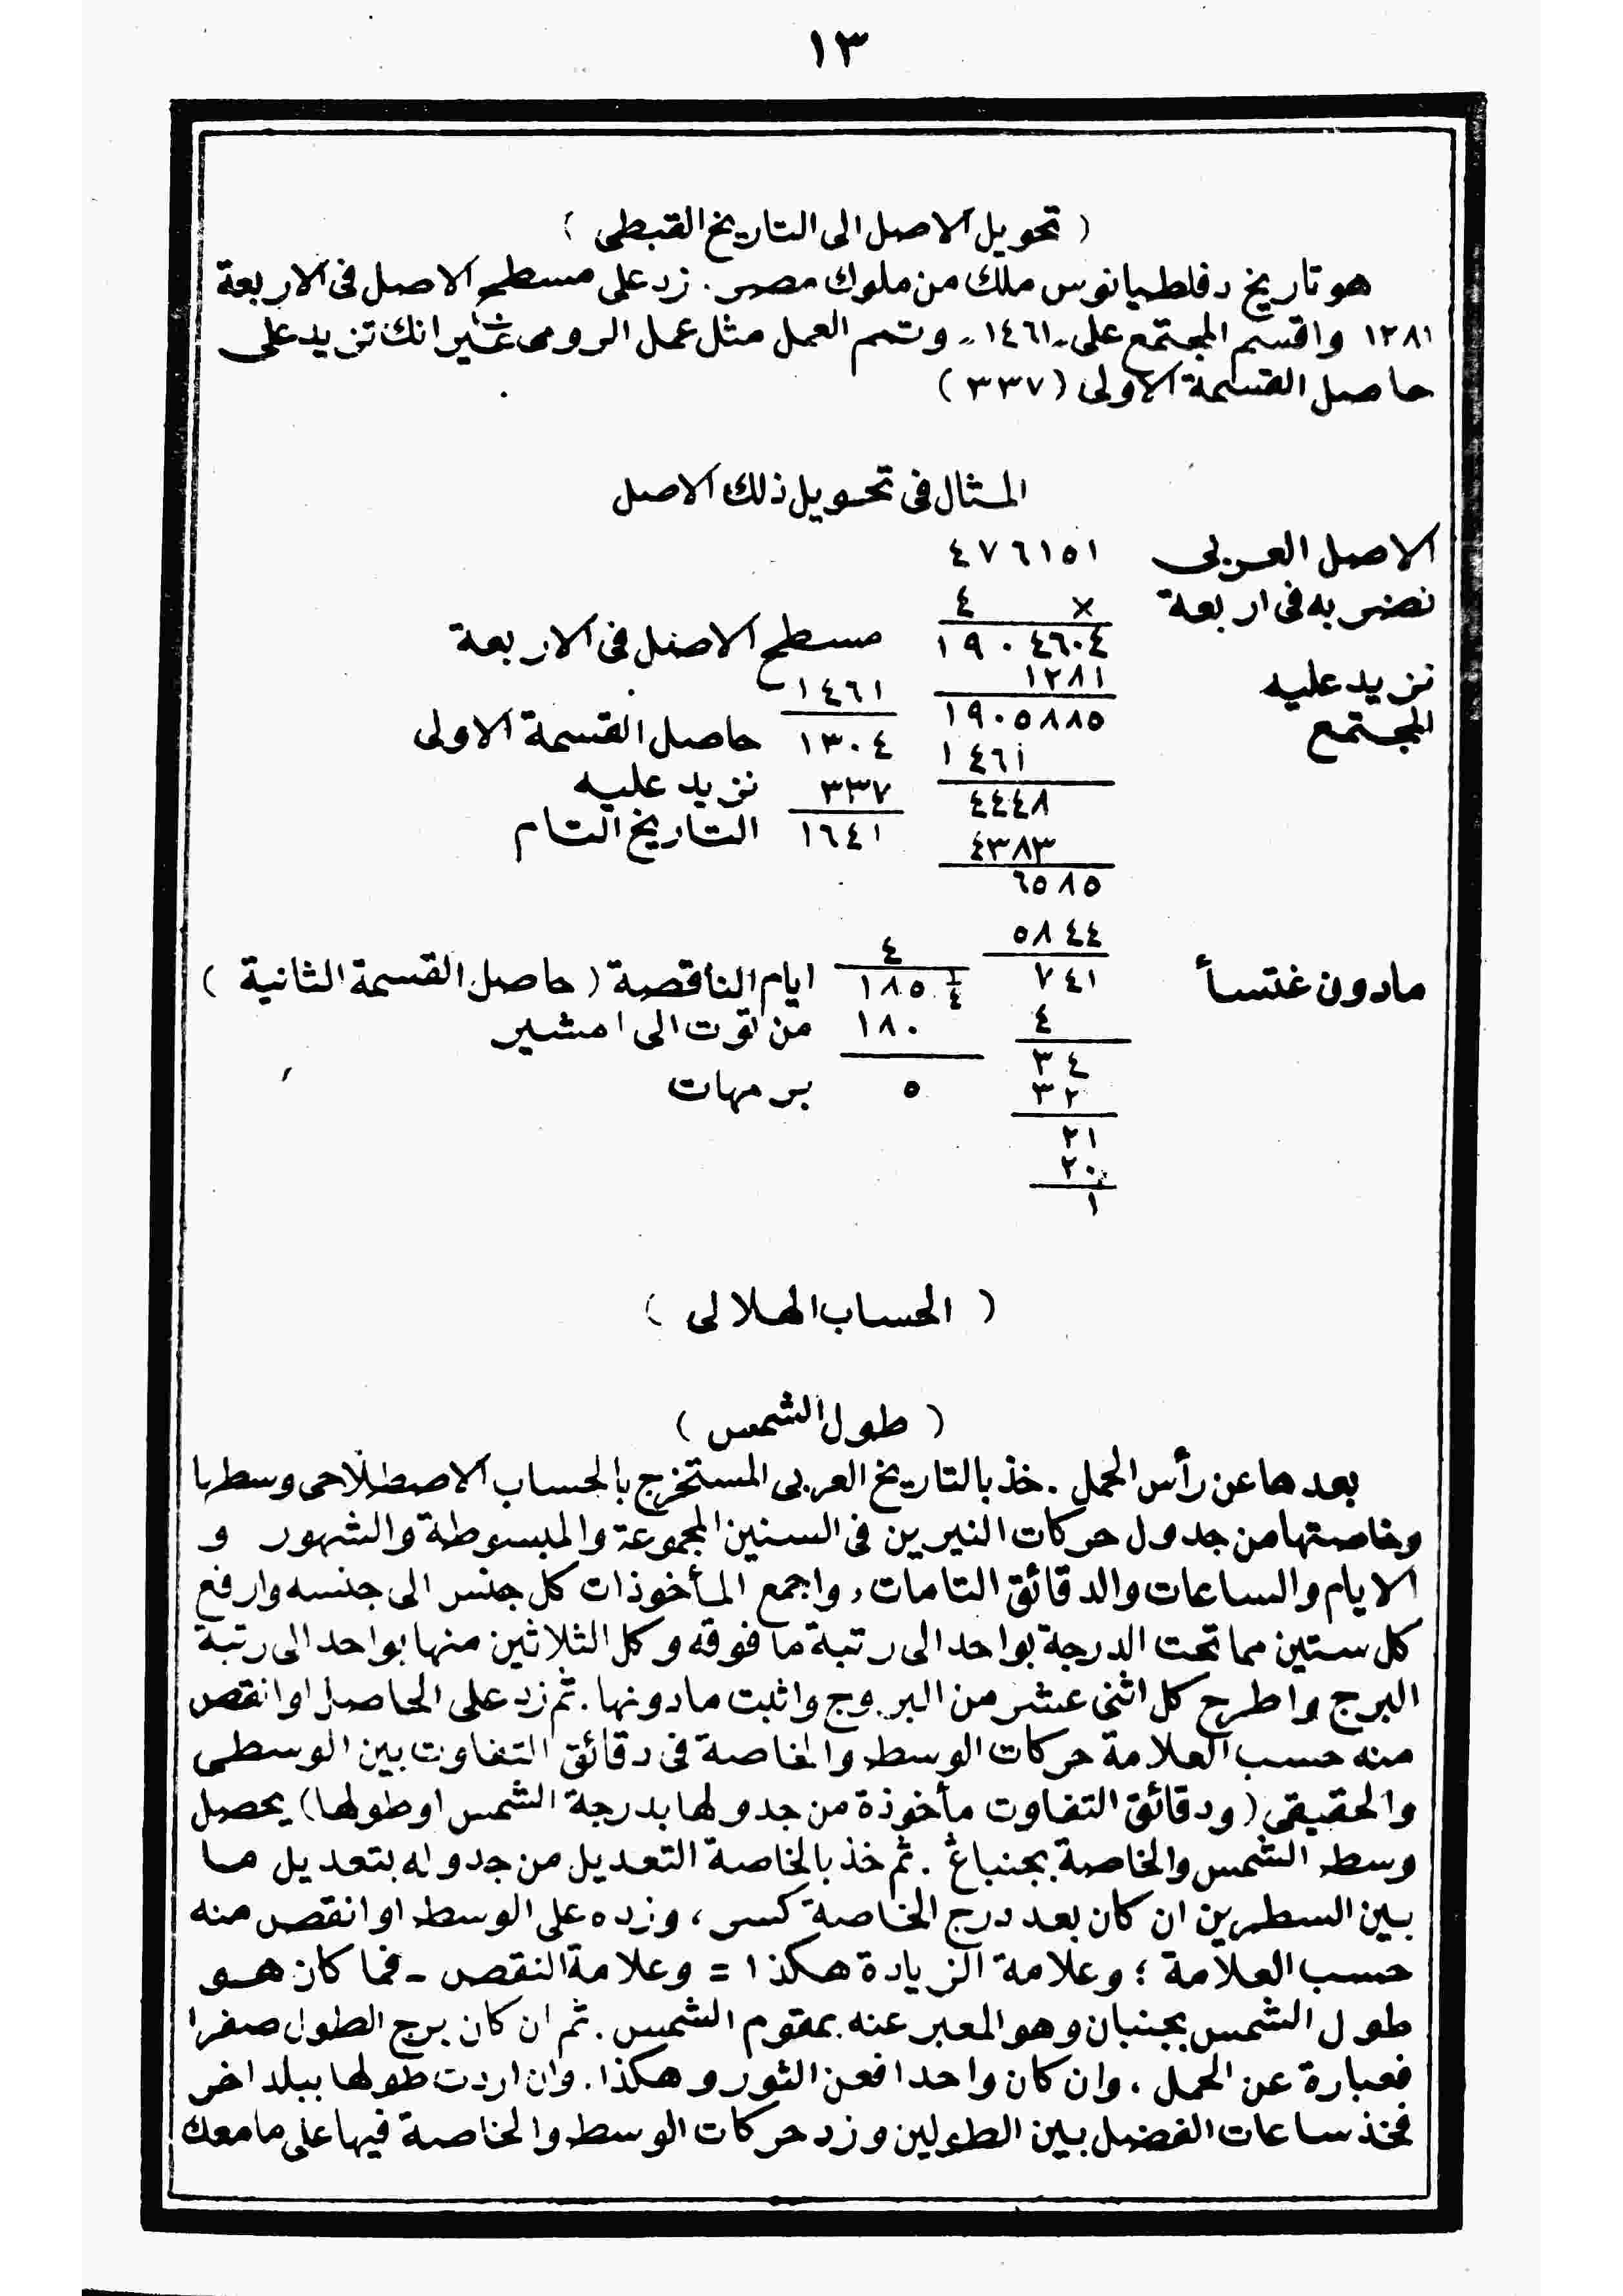 ١٣
( تحويل الاصل الى التاريخ القبطى )
هو تاريخ دفلطيانوس ملك من ملوك مصر. زد على مسطح الاصل فى الاربعة
١٢٨١ واقسم المجتمع على ١٤٦١ وتمم العمل مثل عمل الرومى غير انك تزيد على
حاصل القسمة الاولى (٣٣٧)
المثال فى تحويل ذلك الاصل
الاصل العربى ٤٧٦١٥١
نضربه فى اربعة × ٤
١٩٠٤٦٠٤ مسطح الاصل فى الاربعة
نزيد عليه ١٢٨١ ١٤٦١
المجتمع ١٩٠٥٨٨٥ ١٣٠٤ حاصل القسمة الاولى
١٤٦١ ٣٣٧ نزيد عليه
٤٤٤٨ ١٦٤١ التاريخ التام
٤٣٨٣
٦٥٨٥
٥٨٤٤ ٤
مادون غتسأ ٧٤١ ١٨٥ ١/٤ ايام الناقصة ( حاصل القسمة الثانية )
٤ ١٨٠ من توت الى امشير
٣٤ ٥ برمهات
٣٢
٢١
٢٠
١
( الحساب الهلالى )
( طول الشمس )
بعدها عن رأس الحمل . خذ بالتاريخ العربى المستخرج بالحساب الاصطلاحى وسطها
وخاصتها من جدول حركات النيرين فى السنين المجموعة والمبسوطة والشهور و
الايام والساعات والدقائق التامات، واجمع المأخوذات كل جنس الى جنسه وارفع
كل ستين مما تحت الدرجة بواحد الى رتبة ما فوقه وكل الثلاثين منها بواحد الى رتبة
البرج واطرح كل اثنى عشر من البروج واثبت مادونها. ثم زد على الحاصل او انقص
منه حسب العلامة حركات الوسط والخاصة فى دقائق التفاوت بين الوسطى
والحقيقى (ودقائق التفاوت مأخوذة من جدولها بدرجة الشمس او طولها) يحصل
وسط الشمس والخاصة بجنباغ . ثم خذ بالخاصة التعديل من جدوله بتعديل ما
بين السطرين ان كان بعد درج الخاصة كسر ، وزده على الوسط او انقص منه
حسب العلامة ؛ وعلامة الزيادة هكذا = وعلامة النقص - فما كان هو
طول الشمس بجنبان وهو المعبر عنه بمقوم الشمس. ثم ان كان برج الطول صفرا
فعبارة عن الحمل ، وان كان واحدا فعن الثور وهكذا. وان اردت طولها ببلد اخر
فخذ ساعات الفضل بين الطولين وزد حركات الوسط والخاصة فيها على ما معك